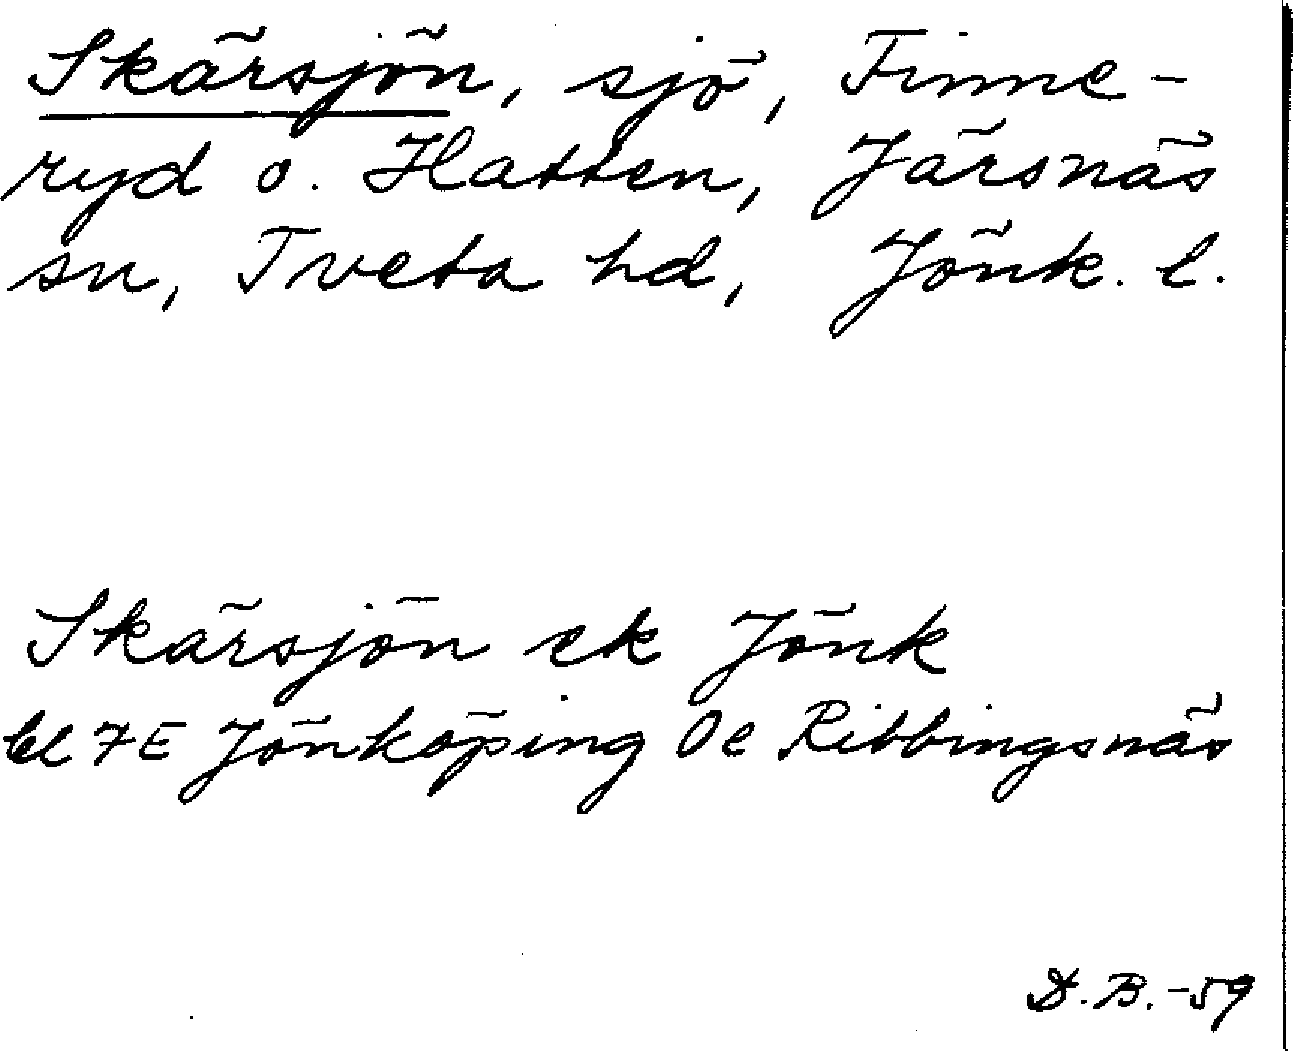 Skärsjön, sjö, Finne-
ryd o. Hatten, Järsnäs
sn, Tveta hd, Jönk. l.
Skärsjön ek Jönk
bl 7E Jönköping Oe Ribbingsnäs
D.B.-59